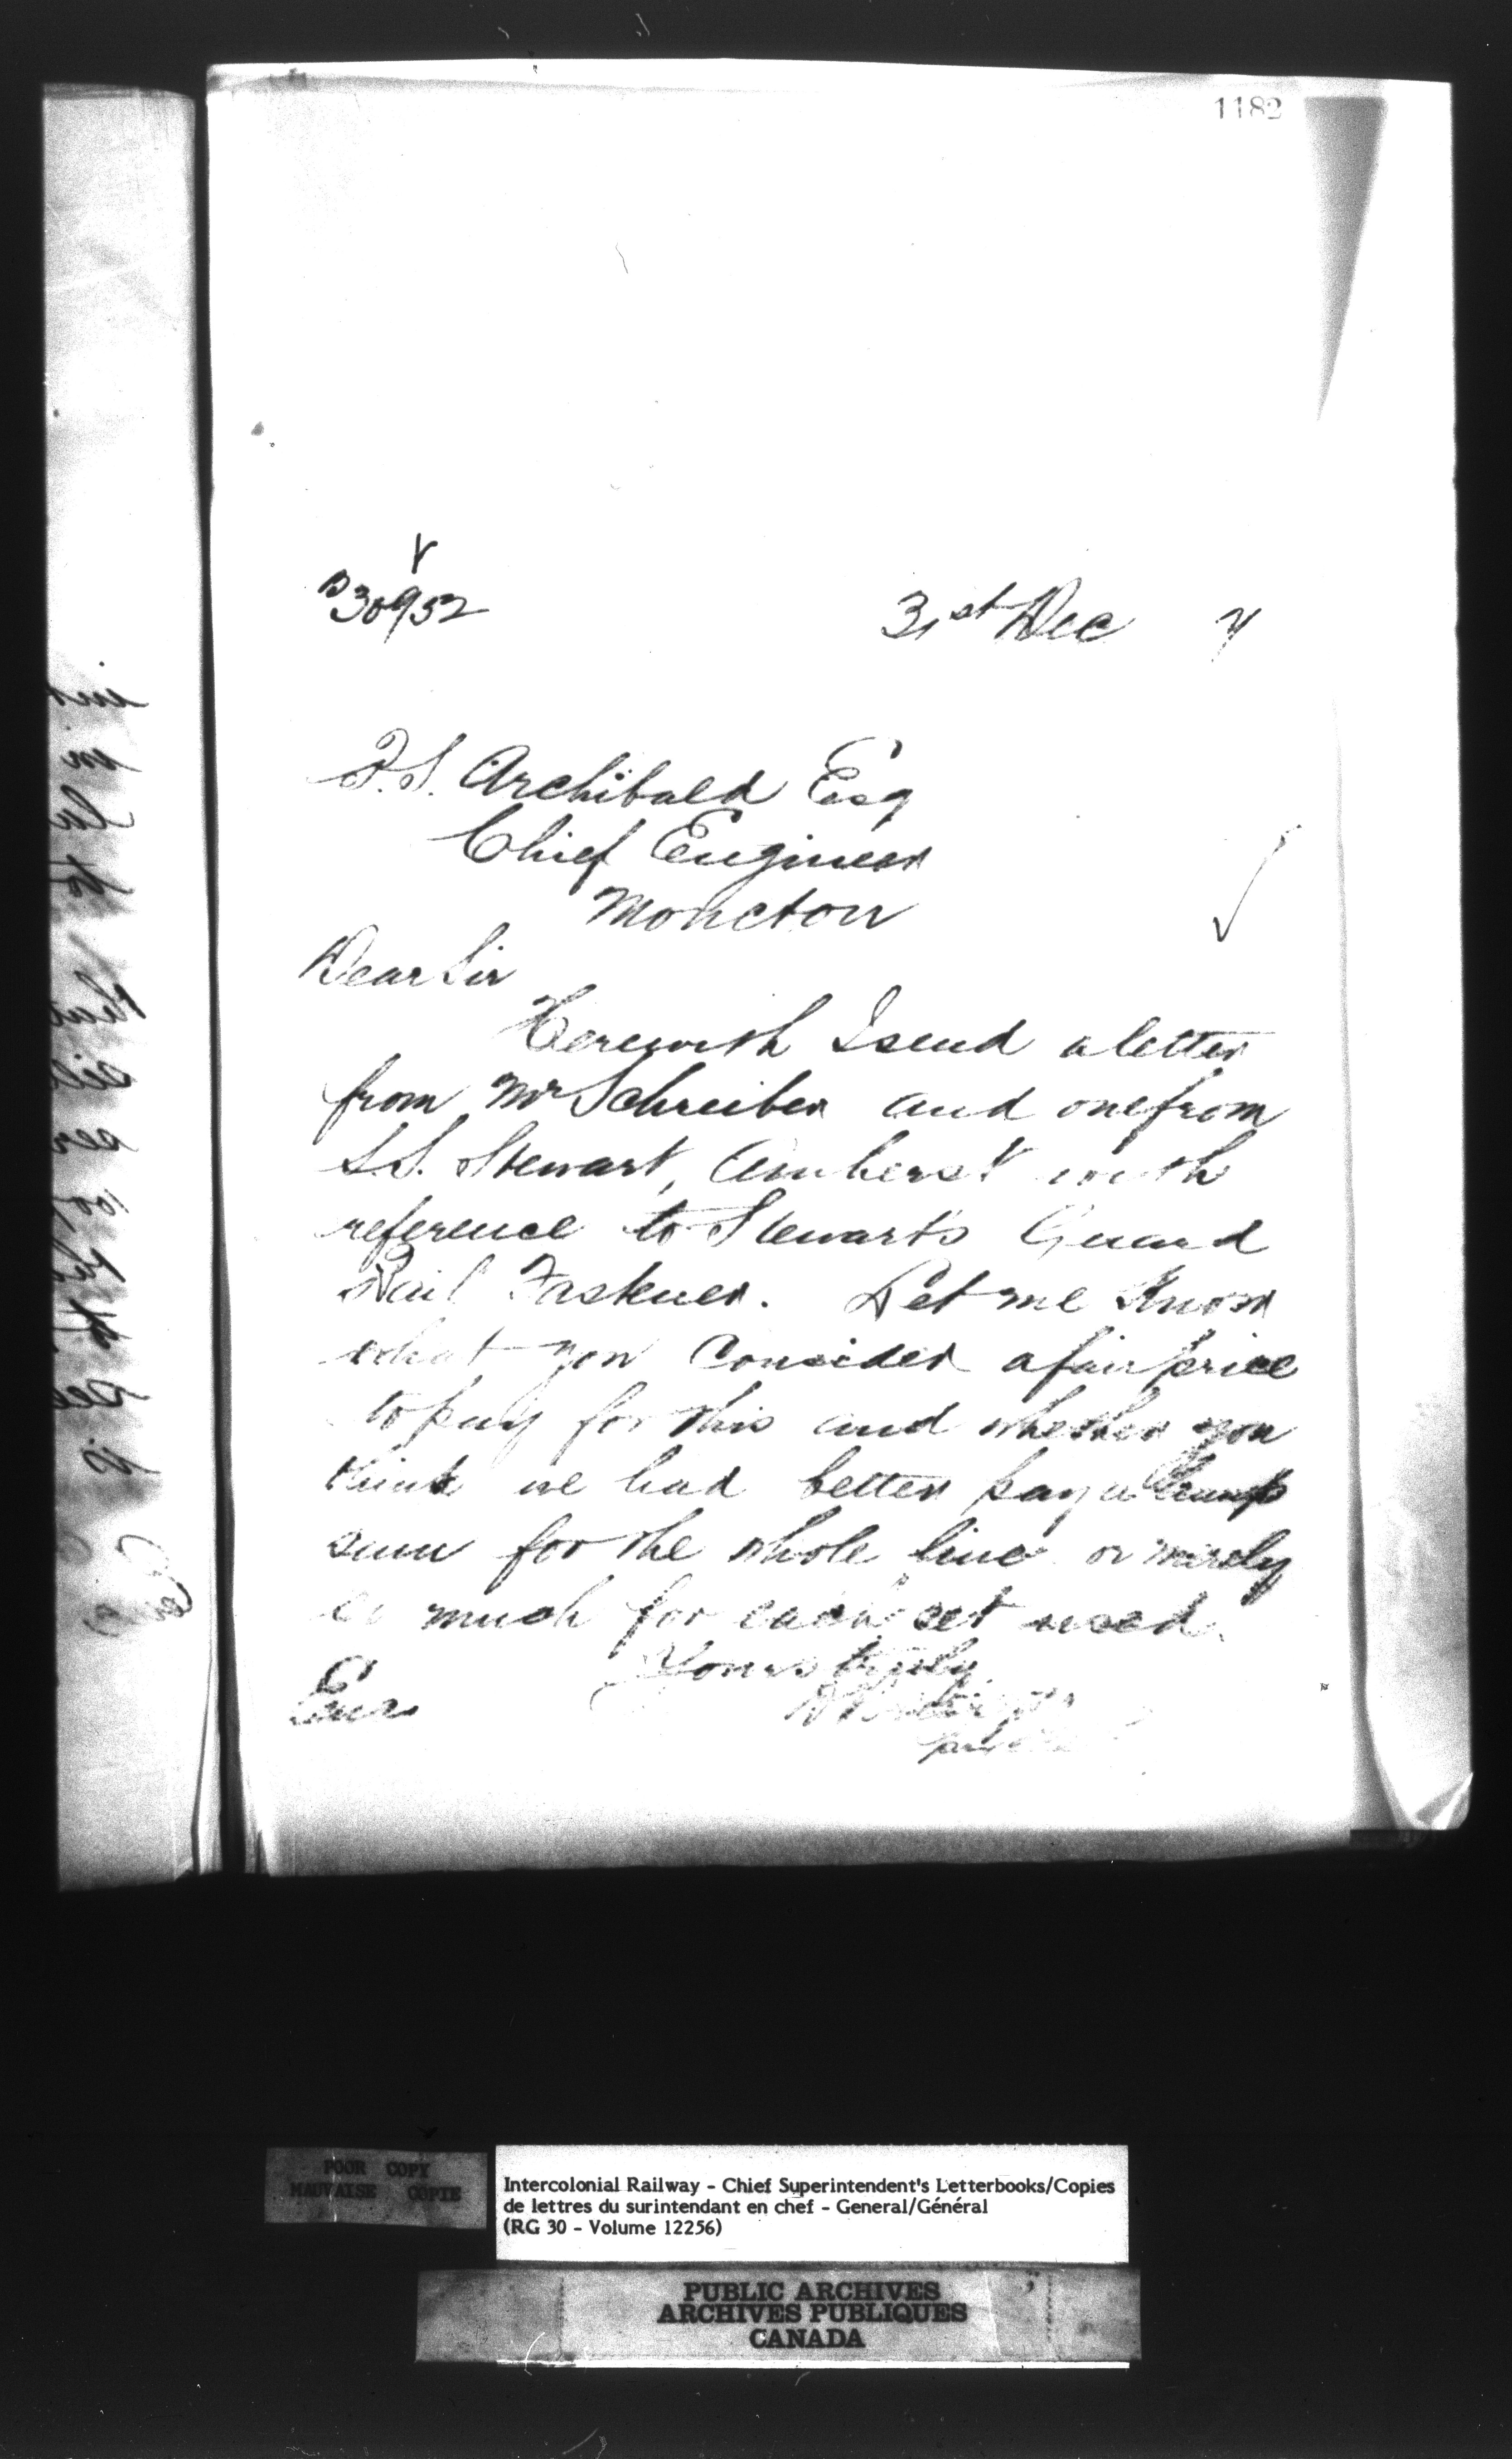 1182
30952
31st Dec 7
P.S. Archibald Esq
Chief Engineer
Moncton
Dear Sir
Herewith I send a letter
from Mr Schreiber and one from
S.S. Stewart, Amherst with
reference to Stewarts Guard
Rail Fastener. Let me know
what you consider a fair price
to pay for this and whether you
think we had better pay a lump
sum for the whole line or merely
so much for each set used.
Yours truly
Encs
POOR COPY
MAUVAISE COPIE
Intercolonial Railway - Chief Superintendent's Letterbooks/Copies
de lettres du surintendant en chef - General/Général
(RG 30 - Volume 12256)
PUBLIC ARCHIVES
ARCHIVES PUBLIQUES
CANADA